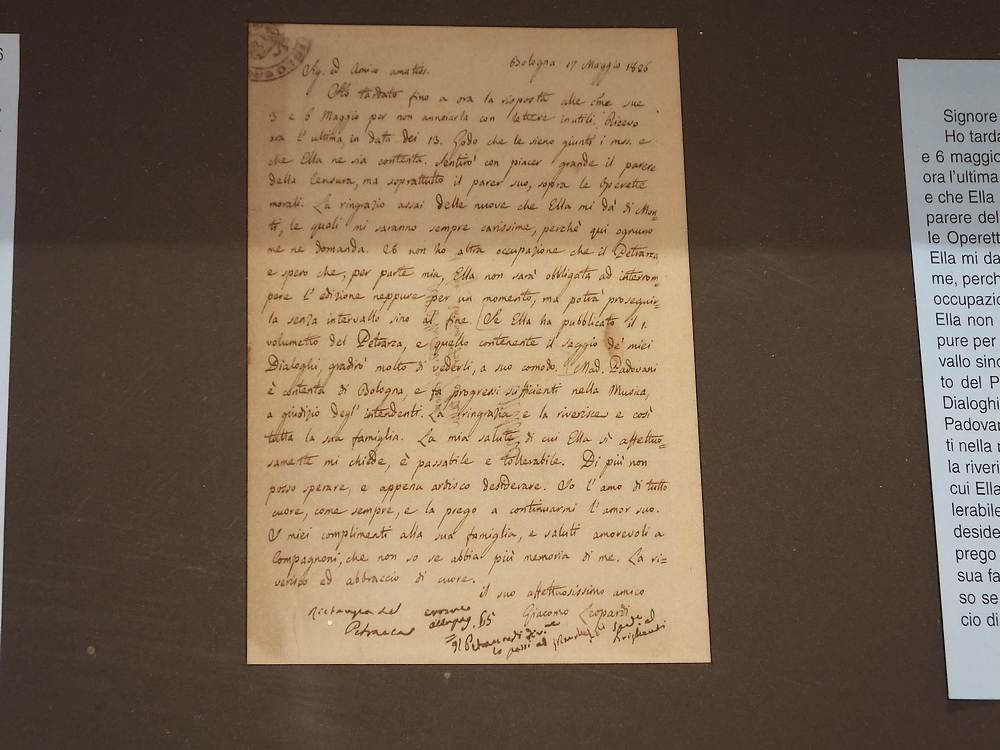 Bologna 17 Maggio 1826
Sig. ed Amico amatiss.
Ho tardato fino a ora la risposta alle cme sue
3 e 6 Maggio per non annoiarla con lettere inutili. Ricevo
ora l'ultima in data dei 13. Godo che le sieno giunti i mss. e
che Ella ne sia contenta. Sentirò con piacer grande il parere
della Censura, ma soprattutto il parer suo, sopra le Operette
morali. La ringrazio assai delle nuove che Ella mi dà di Mon-
ti, le quali mi saranno sempre carissime, perchè qui ognuno
me ne domanda. Io non ho altra occupazione che il Petrarca,
e spero che, per parte mia, Ella non sarà obbligata ad interrom
pere l'edizione neppure per un momento, ma potrà prosegui-
la senza intervallo sino al fine. Se Ella ha pubblicato il 1.
volumetto del Petrarca, e quello contenente il saggio de' miei
Dialoghi, gradirò molto di vederli, a suo comodo. Mad. Padovani
è contenta di Bologna, e fa progressi sufficienti nella Musica,
a giudizio degl'intendenti. La ringrazia e la riverisce e così
tutta la sua famiglia. La mia salute, di cui Ella sì affettuo=
samente mi chiede, è passabile e tollerabile. Di più non
posso sperare, e appena ardisco desiderare. Io l'amo di tutto
cuore, come sempre, e la prego a continuarmi l'amor suo.
I miei complimenti alla sua famiglia, e saluti amorevoli a
Compagnoni, che non so se abbia più memoria di me. La ri=
verisco ed abbraccio di cuore.
il suo affettuosissimo amico
Giacomo Leopardi
del
Petrarca
6
Signore
Ho tarda
e 6 maggio
ora l'ultima
e che Ella
parere del
le Operett
Ella mi da
me, perch
occupazio
Ella non
pure per
vallo sino
to del P
Dialoghi
Padovan
ti nella
la riveri
cui Ella
lerabile
deside
prego
sua fa
so se
cio di